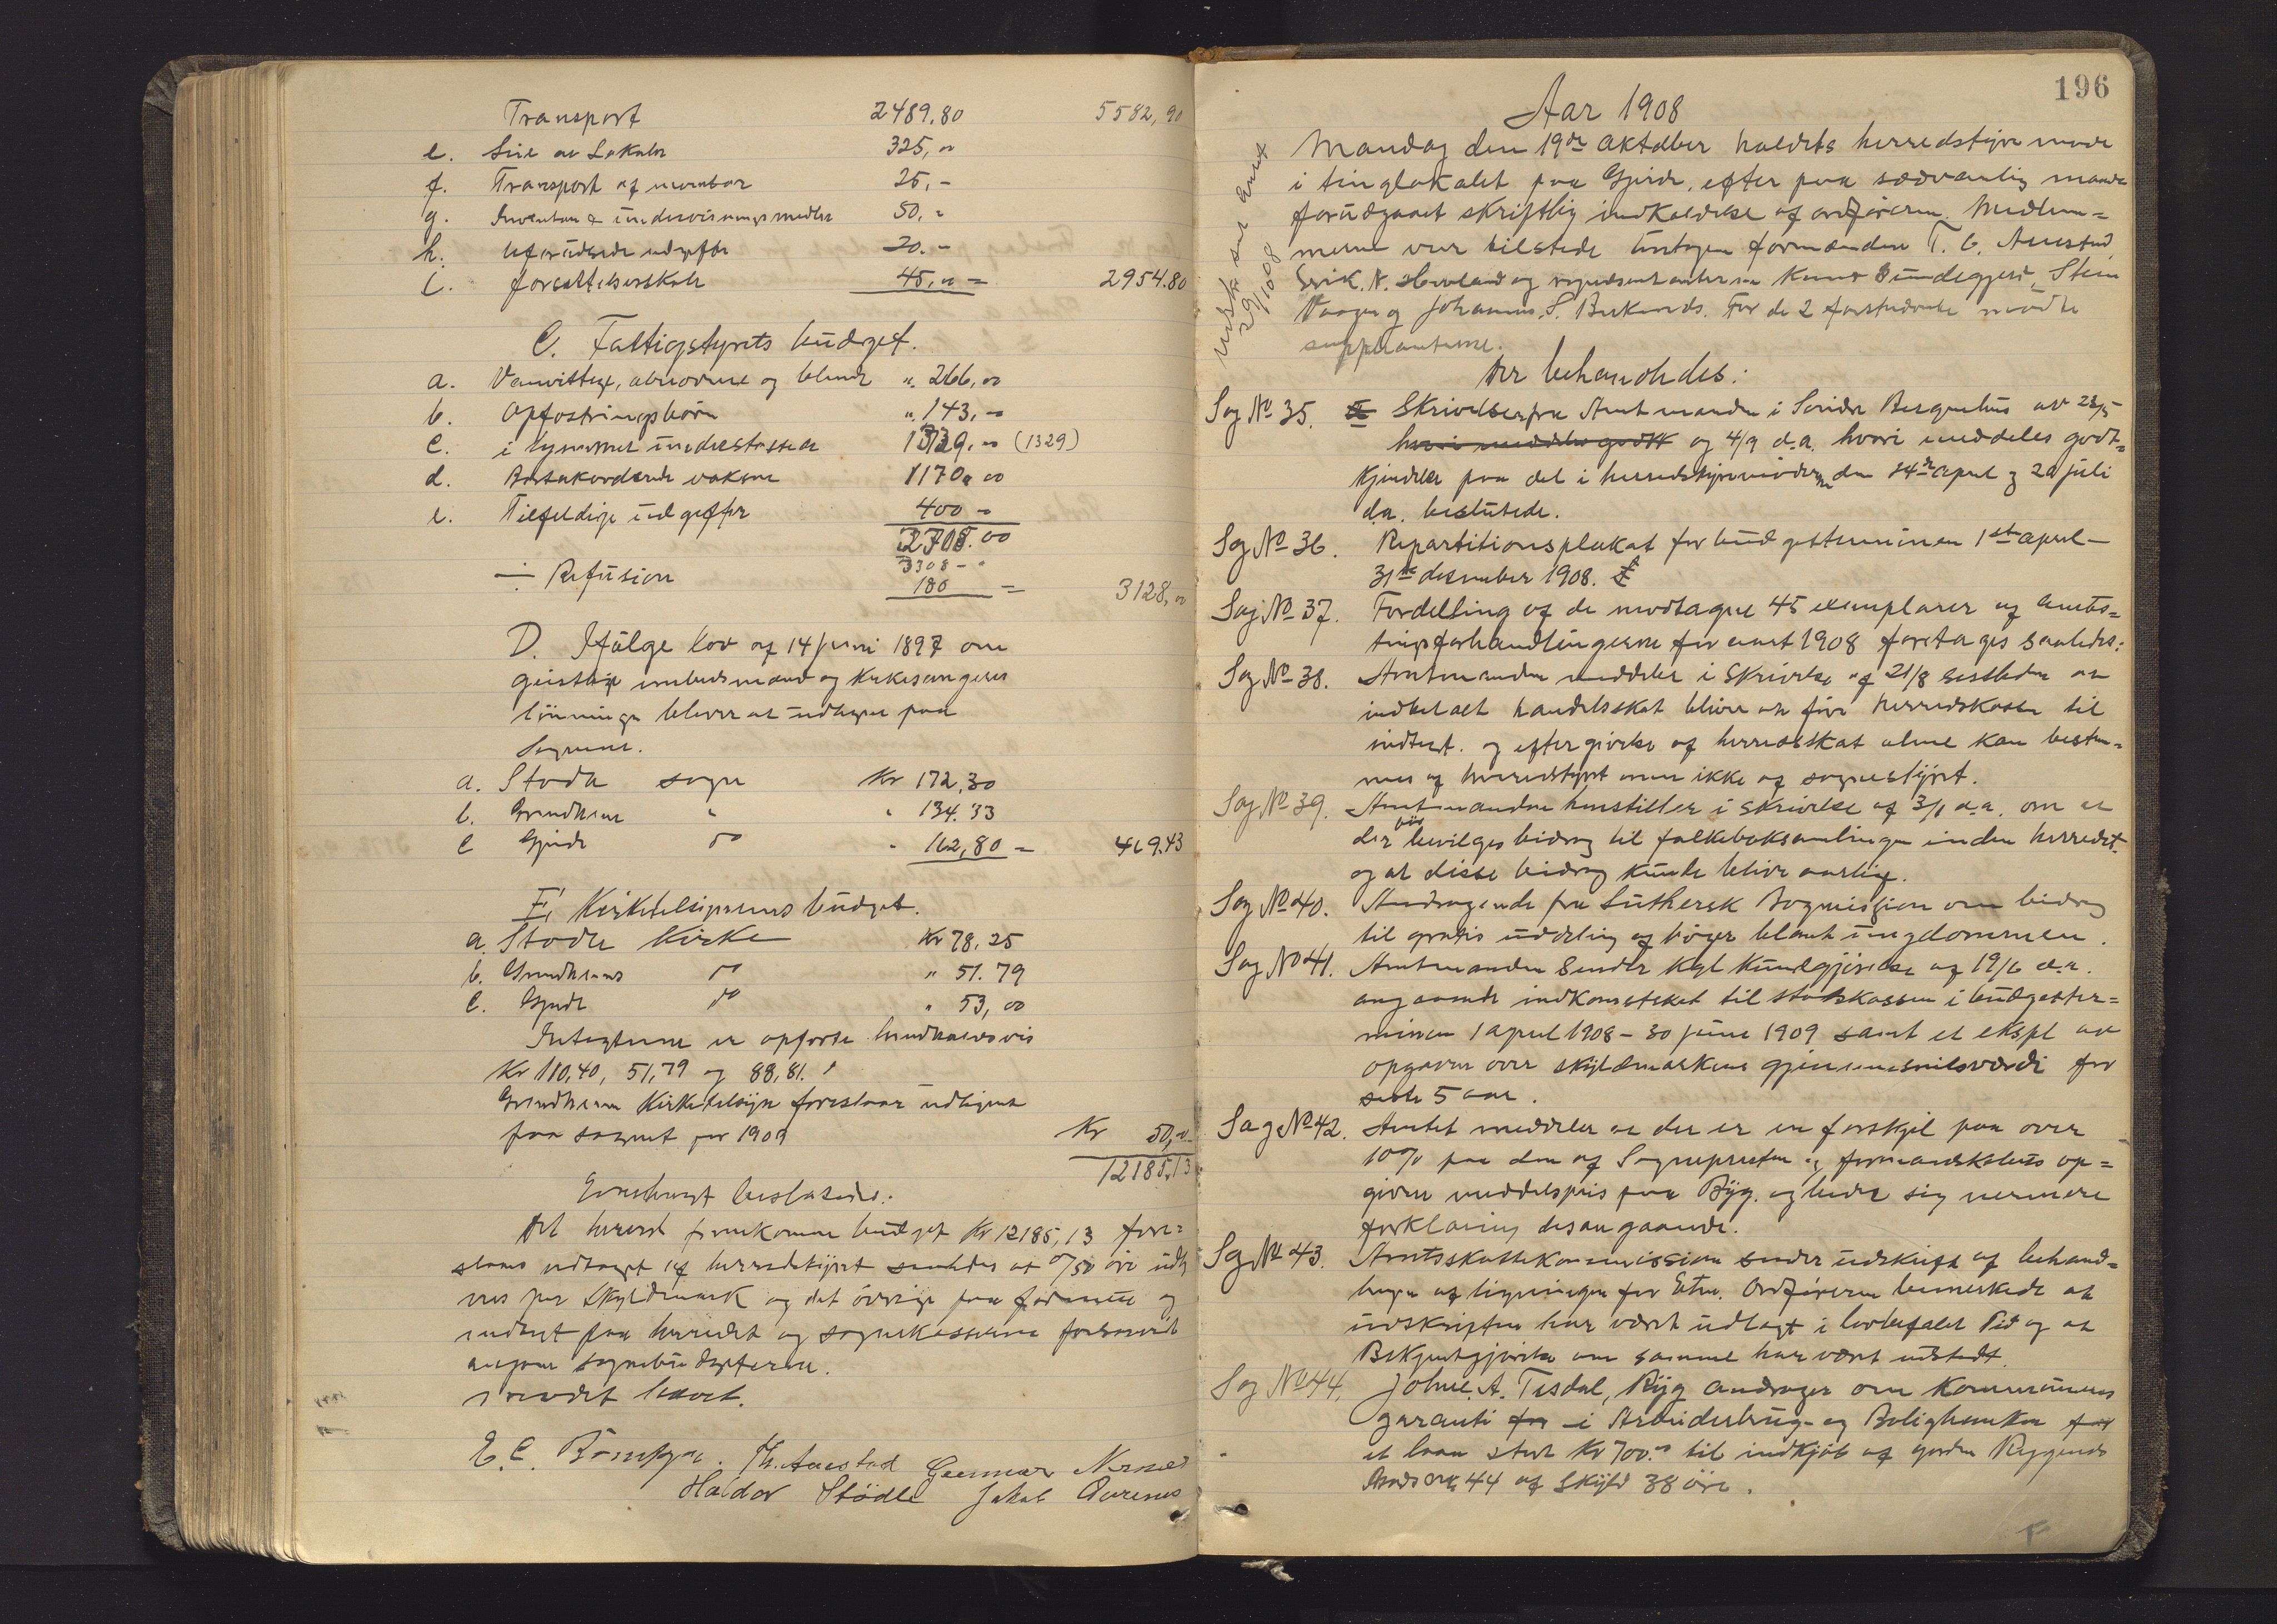 Transport 2489,80 5582,90
e. Leie av Lokaler 325,00
f. Transport af inventar 25,-
g. Inventar & undervisningsmedler 50,-
h. Uforudseede udgifter 20.-
i. forsættelsesskole 45,00 = 2954.80
C. Fattigstyrets budget.
a. Vanvittige, abnorme og blinde ". 266,00
b. Opfostringsbörn ". 143,-
c. i hjemmet understøttede 1329,00 (1329)
d. Bortakorderede voksne 1170,00
e. Tilfældige udgifter 400 -
2708.00
3308 - "
÷ Refusion 180 = 3128,00
D. Ifølge Lov af 14 juni 1897 om
geistlige embedsmænd og kirkesangeres
lönninger bliver at udligne paa
Sognene.
a. Stødle sogn Kr 172,30
b. Grindheim " " 134.33
c Gjerde do " 162,80 = 469.43
E, Kirketilsynenes budget.
a. Stødle Kirke Kr 78,25
b. Grindheims do " 51.79
c. Gjerde do " 53,00
Indtægterne er opførte henholdsvis
Kr 110,40, 51,79 og 88,81.
Grindheim Kirketilsyn foreslaar udlignet
paa sognet for 1909 Kr 50,00
12185,13
Enstemmigt besluttedes:
Det herved fremkomne budget Kr 12185,13 fore=
slaaes udlagt af herredstyret saaledes at 0/50 øre udlig
nes per Skyldmark og det övrige paa formue og
indtægt paa herredet og sognekasserne forsaavidt
angaar sognebudgetterne.
Mødet hævet.
E. C. Børretzen. Th. Auestad Gunnar Nernes
Haldor Stödle Jakob Qvereus
196
Aar 1908
Mandag den 19de oktober holdtes herredstyremøde
i tinglokalet paa Gjerde, efter paa sædvanlig maade
forudgaaet skriftlig indkaldelse af ordføreren. Medlem=
merne var tilstede undtagen formændene T. C. Auestad
Erik. N. Hovland og repræsentanterne Knut Sundegjerd, Stein
Vaage og Johannes. S. Birkenes. For de 2 førstnævnte mødte
suppleanterne.
29/10 08
Der behandledes:
Sag No 35. Skrivelser fra Amtmanden i Søndre Bergenhus av 23/5
hvori meddeles godk og 4/9 d.a. hvori meddeles godk=
kjendelse paa det i herredstyremøderne den 14de april og 20 juli
d.a. besluttede.
Sag No 36. Repartitionsplakat for budgetterminen 1ste april -
31te desember 1908.
Sag No 37. Fordelling af de modtagne 45 exemplarer af amts=
tingsforhandlingerne for aaret 1908 foretages saaledes:
Sag No 38. Amtmanden meddeler i skrivelse af 21/8 sistleden at
indbetalt handelsskat bliver at føre herredskassen til
indtægt. og eftergivelse af herredsskat alene kan bestem=
mes af herredstyret men ikke af sognestyret.
Sag No 39. Amtmanden henstiller i skrivelse af 3/1 d.a. om at
der bör bevilges bidrag til folkeboksamlinger inden herredet.
og at disse bidrag kunde blive aarlige.
Sag No 40. Andragende fra Luthersk Bogmission om bidrag
til gratis uddeling af bøger blandt ungdommen.
Sag No 41. Amtmanden sender Kgl Kundgjørelse af 19/6 d.a.
angaaende indkomstskat til statskassen i budgetter=
minen 1 april 1908 - 30 juni 1909 samt et ekspl av
opgaven over skyldmarkens gjennemsnitsværdi for
siste 5 aar.
Sag No 42. Amtet meddeler at der er en forskjel paa over
10% paa den af Sognepresten og formandskabets op=
givne middelspris paa Byg. og beder sig nærmere
forklaring desangaaende.
Sag No 43. Amtsskattekommission sender udskrift af behand=
lingen af ligningen for Etne. Ordføreren bemerkede at
udskriften har været udlagt i lovbefalet Tid og at
Bekjendtgjørelse om samme har været udstedt.
Sag No 44. Johne. A. Tesdal, Ryg andrager om kommunens
garanti for i Arbeiderbrug- og Boligbanken for
et laan stort Kr 700.00 til indkjøb af garden Ryggends
Gards No 44 af skyld 38 øre.